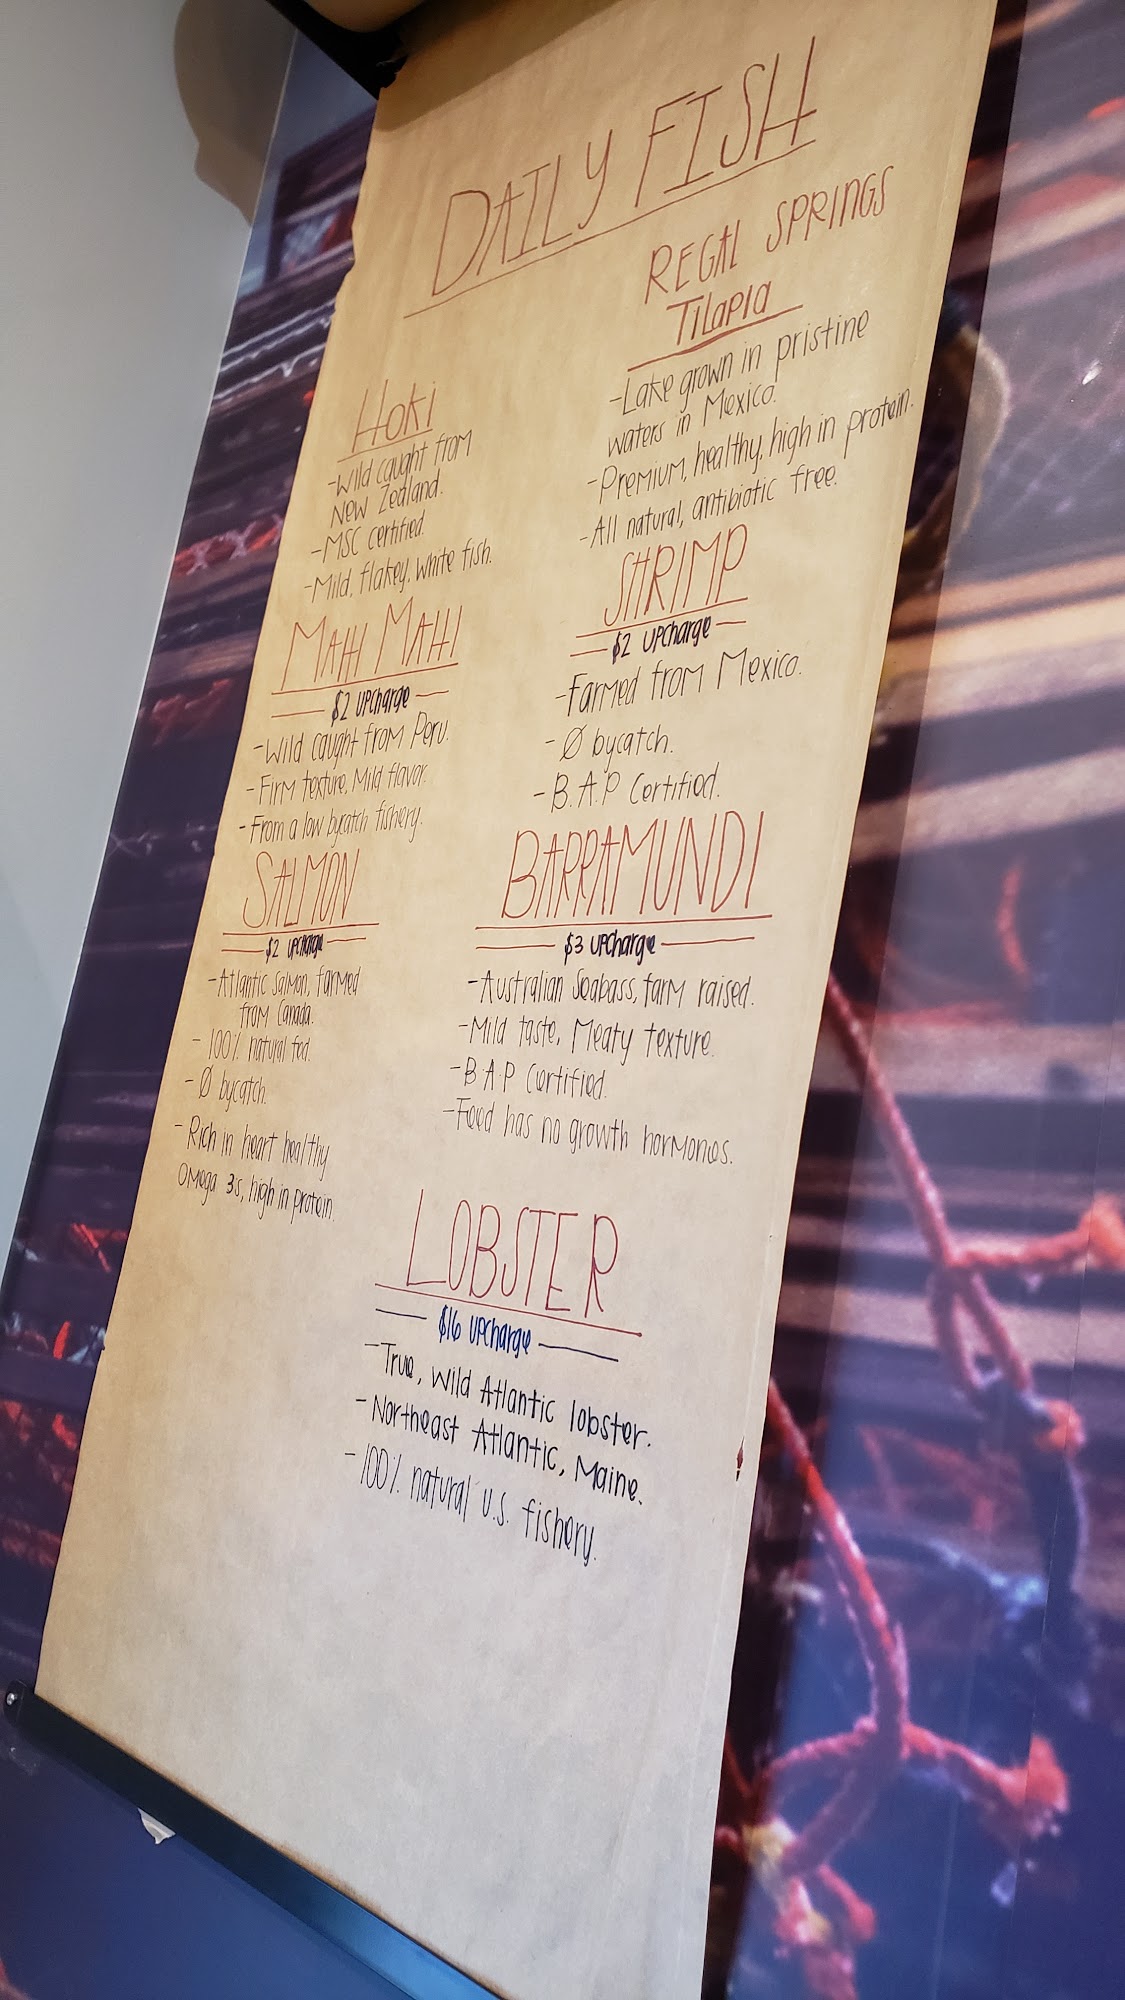 DAILY FISH
HOKI
-Wild caught from
New Zealand.
-MSC certified.
-Mild, flakey, white fish.
MAHI MAHI
$2 UPCharge
-Wild caught from Peru.
-Firm texture, Mild flavor.
-From a low bycatch fishery.
SALMON
$2 UPCharge
-Atlantic Salmon, farmed
from Canada.
-100% natural fed.
-Ø bycatch.
-Rich in heart healthy
Omega 3's, high in protein.
REGAL SPRINGS
TILAPIA
-Lake grown in pristine
waters in Mexico.
-Premium, healthy, high in protein.
-All natural, antibiotic free.
SHRIMP
$2 UPCharge
-Farmed from Mexico.
-Ø bycatch.
-B.A.P Certified.
BARRAMUNDI
$3 UPCharge
-Australian Seabass, farm raised.
-Mild taste, Meaty texture.
-B.A.P Certified.
-Feed has no growth hormones.
LOBSTER
$16 UPCharge
-True, wild Atlantic lobster.
-Northeast Atlantic, Maine.
-100% natural U.S. fishery.